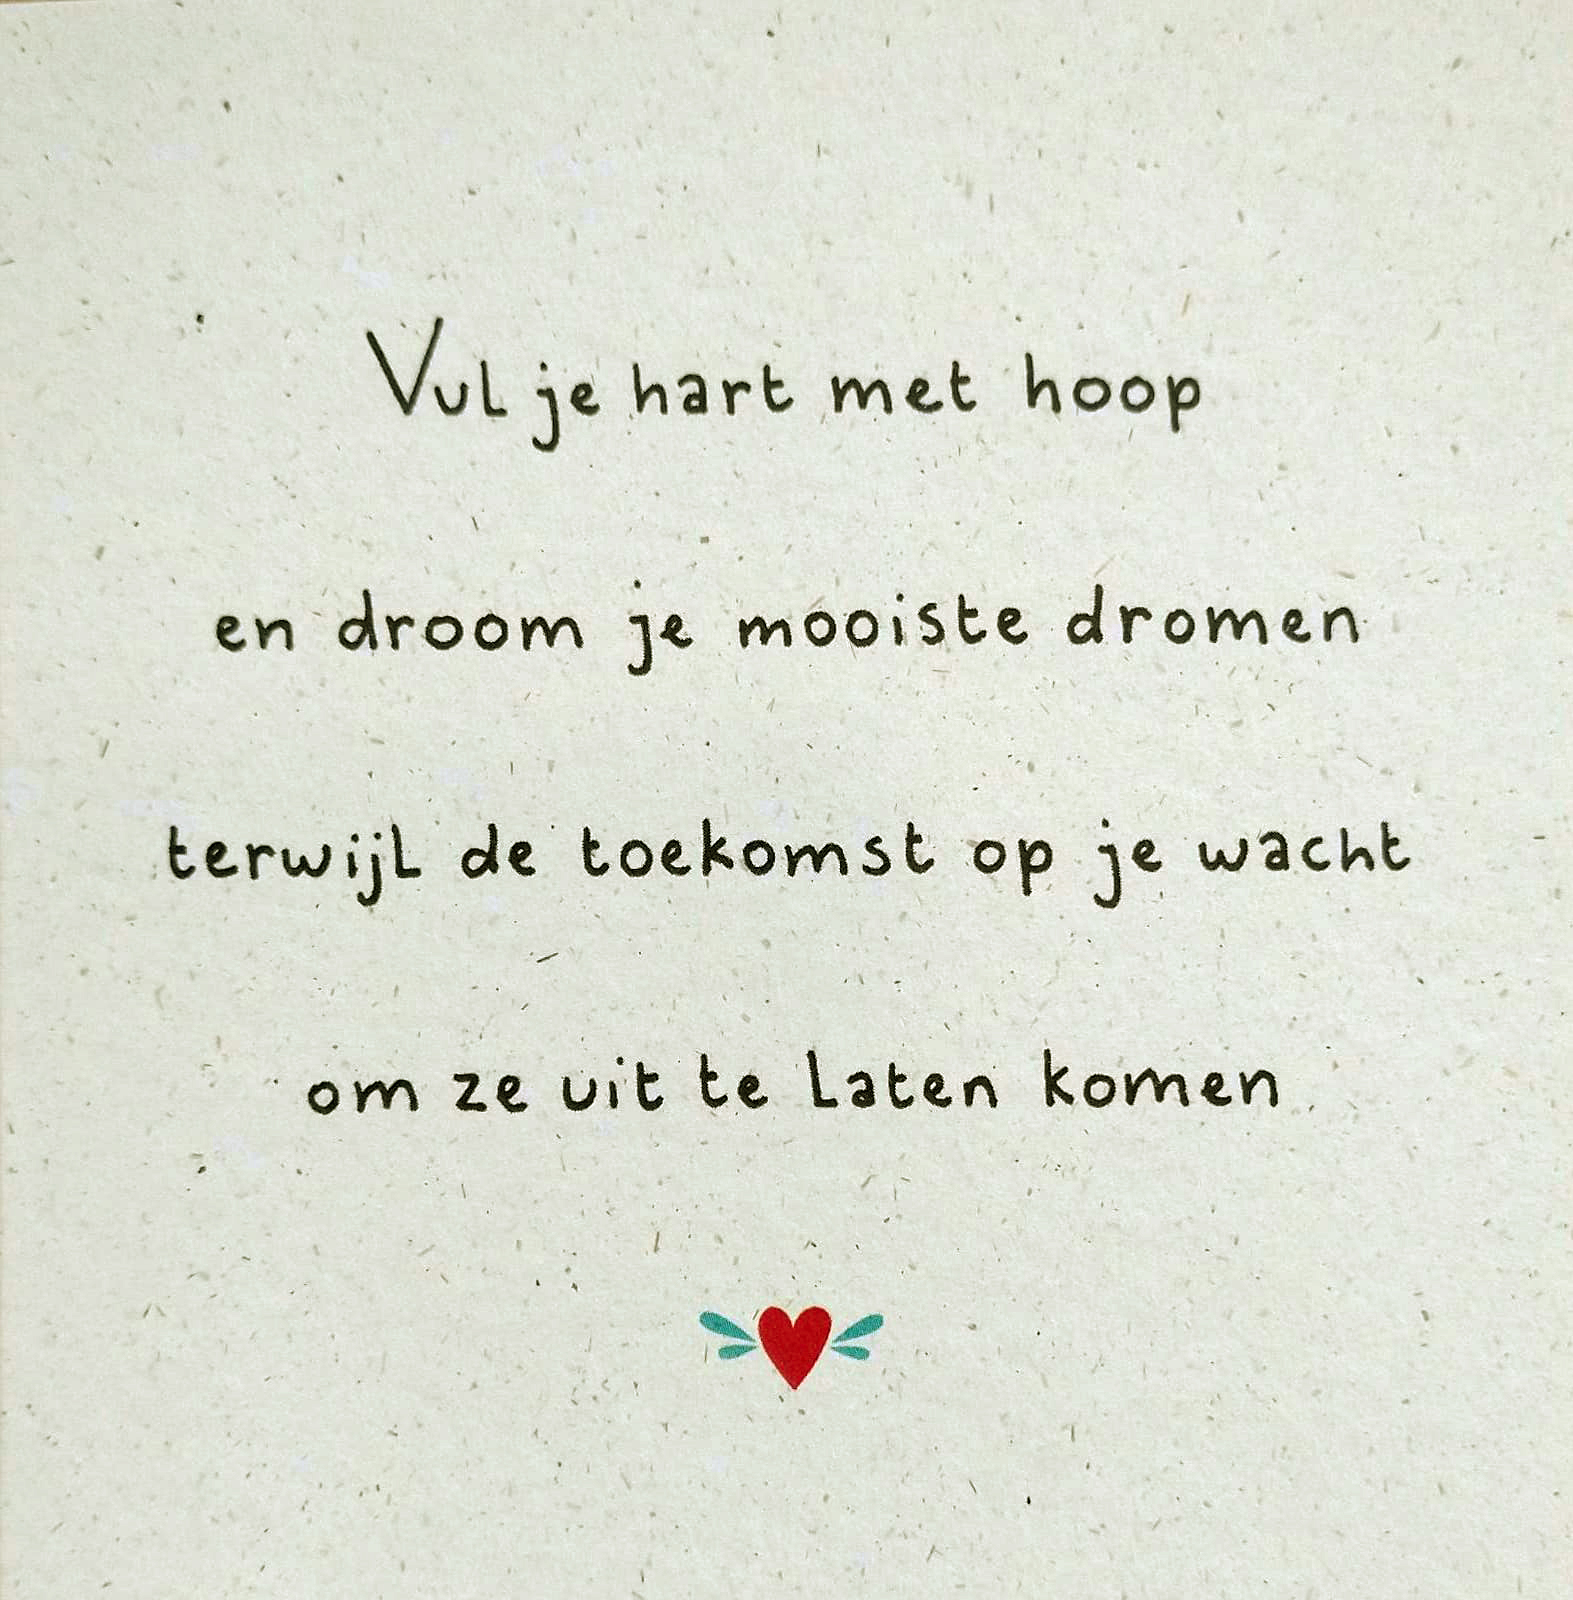 Vul je hart met hoop
en droom je mooiste dromen
terwijl de toekomst op je wacht
om ze uit te laten komen